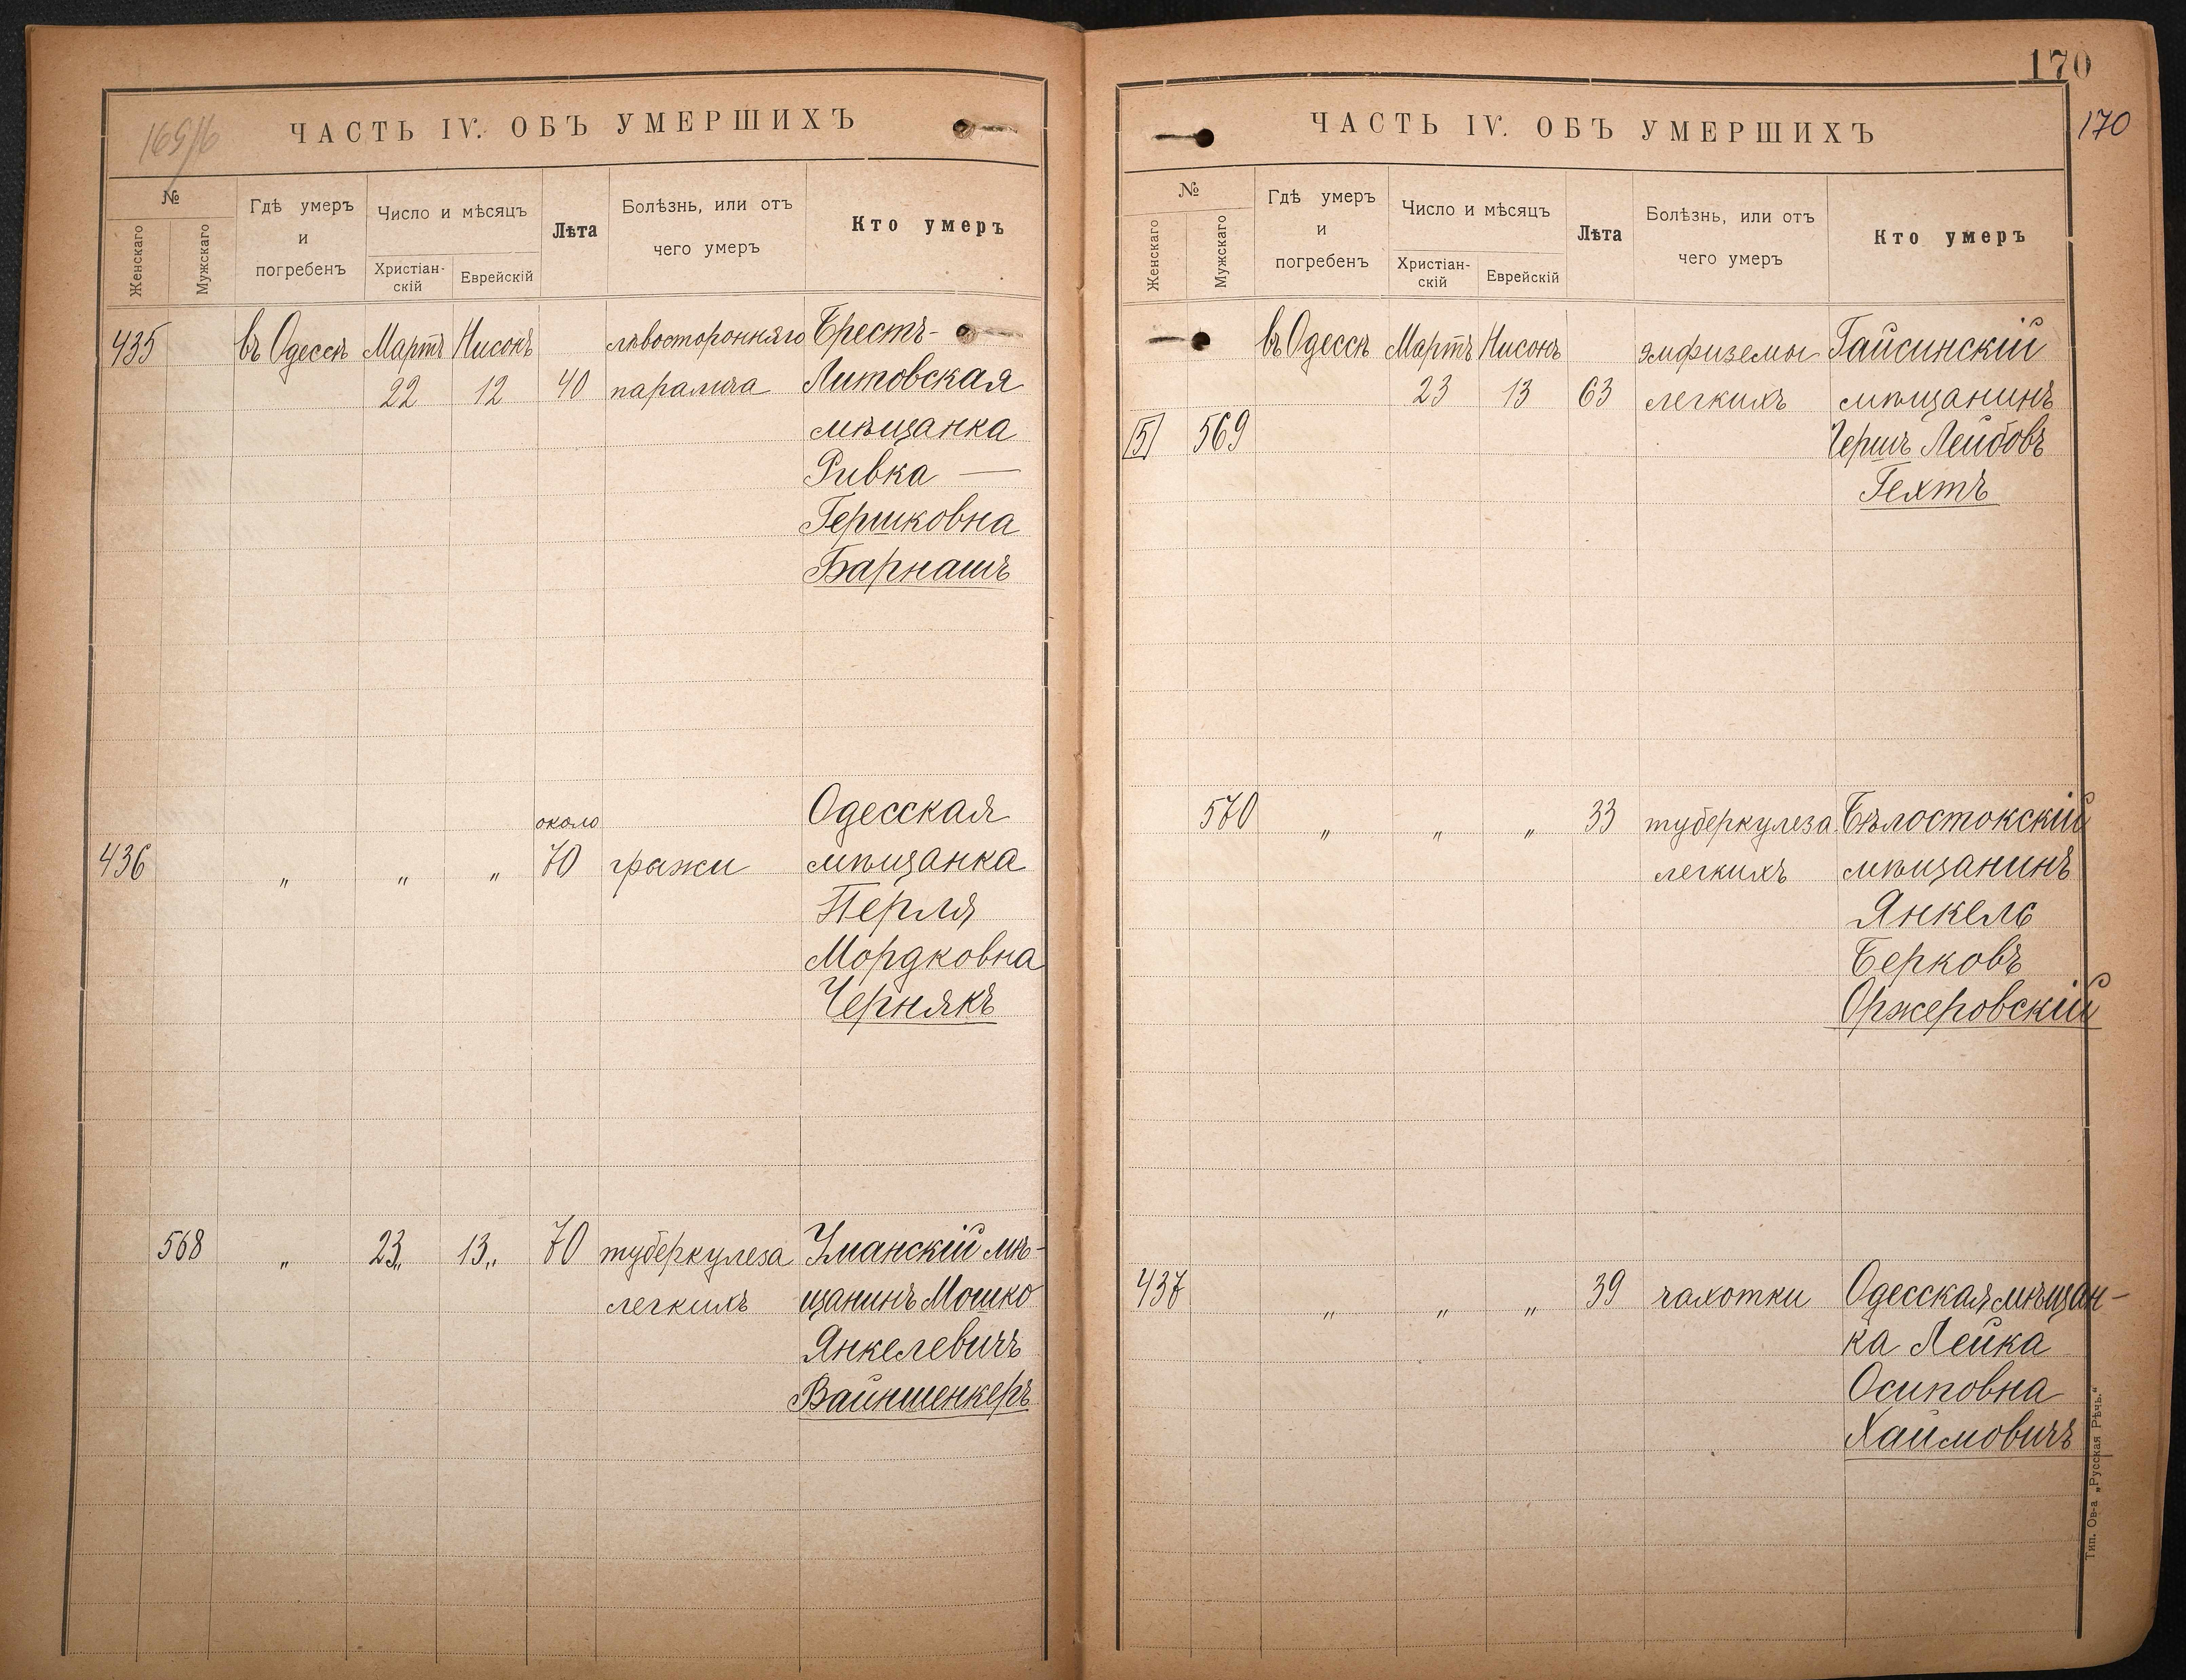 169/6
ЧАСТЬ IV. ОБЪ УМЕРШИХЪ
№
Женскаго
Мужскаго
Гдѣ умеръ
и
погребенъ
Число и мѣсяцъ
Христіан-
скій
Еврейскій
Лѣта
Болѣзнь, или отъ
чего умеръ
Кто умеръ
435 въ Одессѣ Мартъ Нисонъ лѣвосторонняго Брестъ-
22 12 40 паралича Литовская
мѣщанка
Ривка —
Гершковна
Барнашъ
около Одесская
436 „ „ „ 70 грыжи мѣщанка
Перля
Мордковна
Чернякъ
568 „ 23„ 13„ 70 туберкулеза Уманскій мѣ-
легкихъ щанинъ Мошко
Янкелевичъ
Вайншенкеръ
170
170
ЧАСТЬ IV. ОБЪ УМЕРШИХЪ
№
Женскаго
Мужскаго
Гдѣ умеръ
и
погребенъ
Число и мѣсяцъ
Христіан-
скій
Еврейскій
Лѣта
Болѣзнь, или отъ
чего умеръ
Кто умеръ
въ Одессѣ Мартъ Нисонъ эмфиземы Гайсинскій
23 13 63 легкихъ мѣщанинъ
5 569 Гершъ Лейбовъ
Гехтъ
570 „ „ „ 33 туберкулеза Бѣлостокскій
легкихъ мѣщанинъ
Янкель
Берковъ
Оржеровскій
437 „ „ „ 39 чахотки Одесская мѣщан-
ка Лейка
Осиповна
Хаимовичъ
Тип. Ов-а „Русская Рѣчь.“